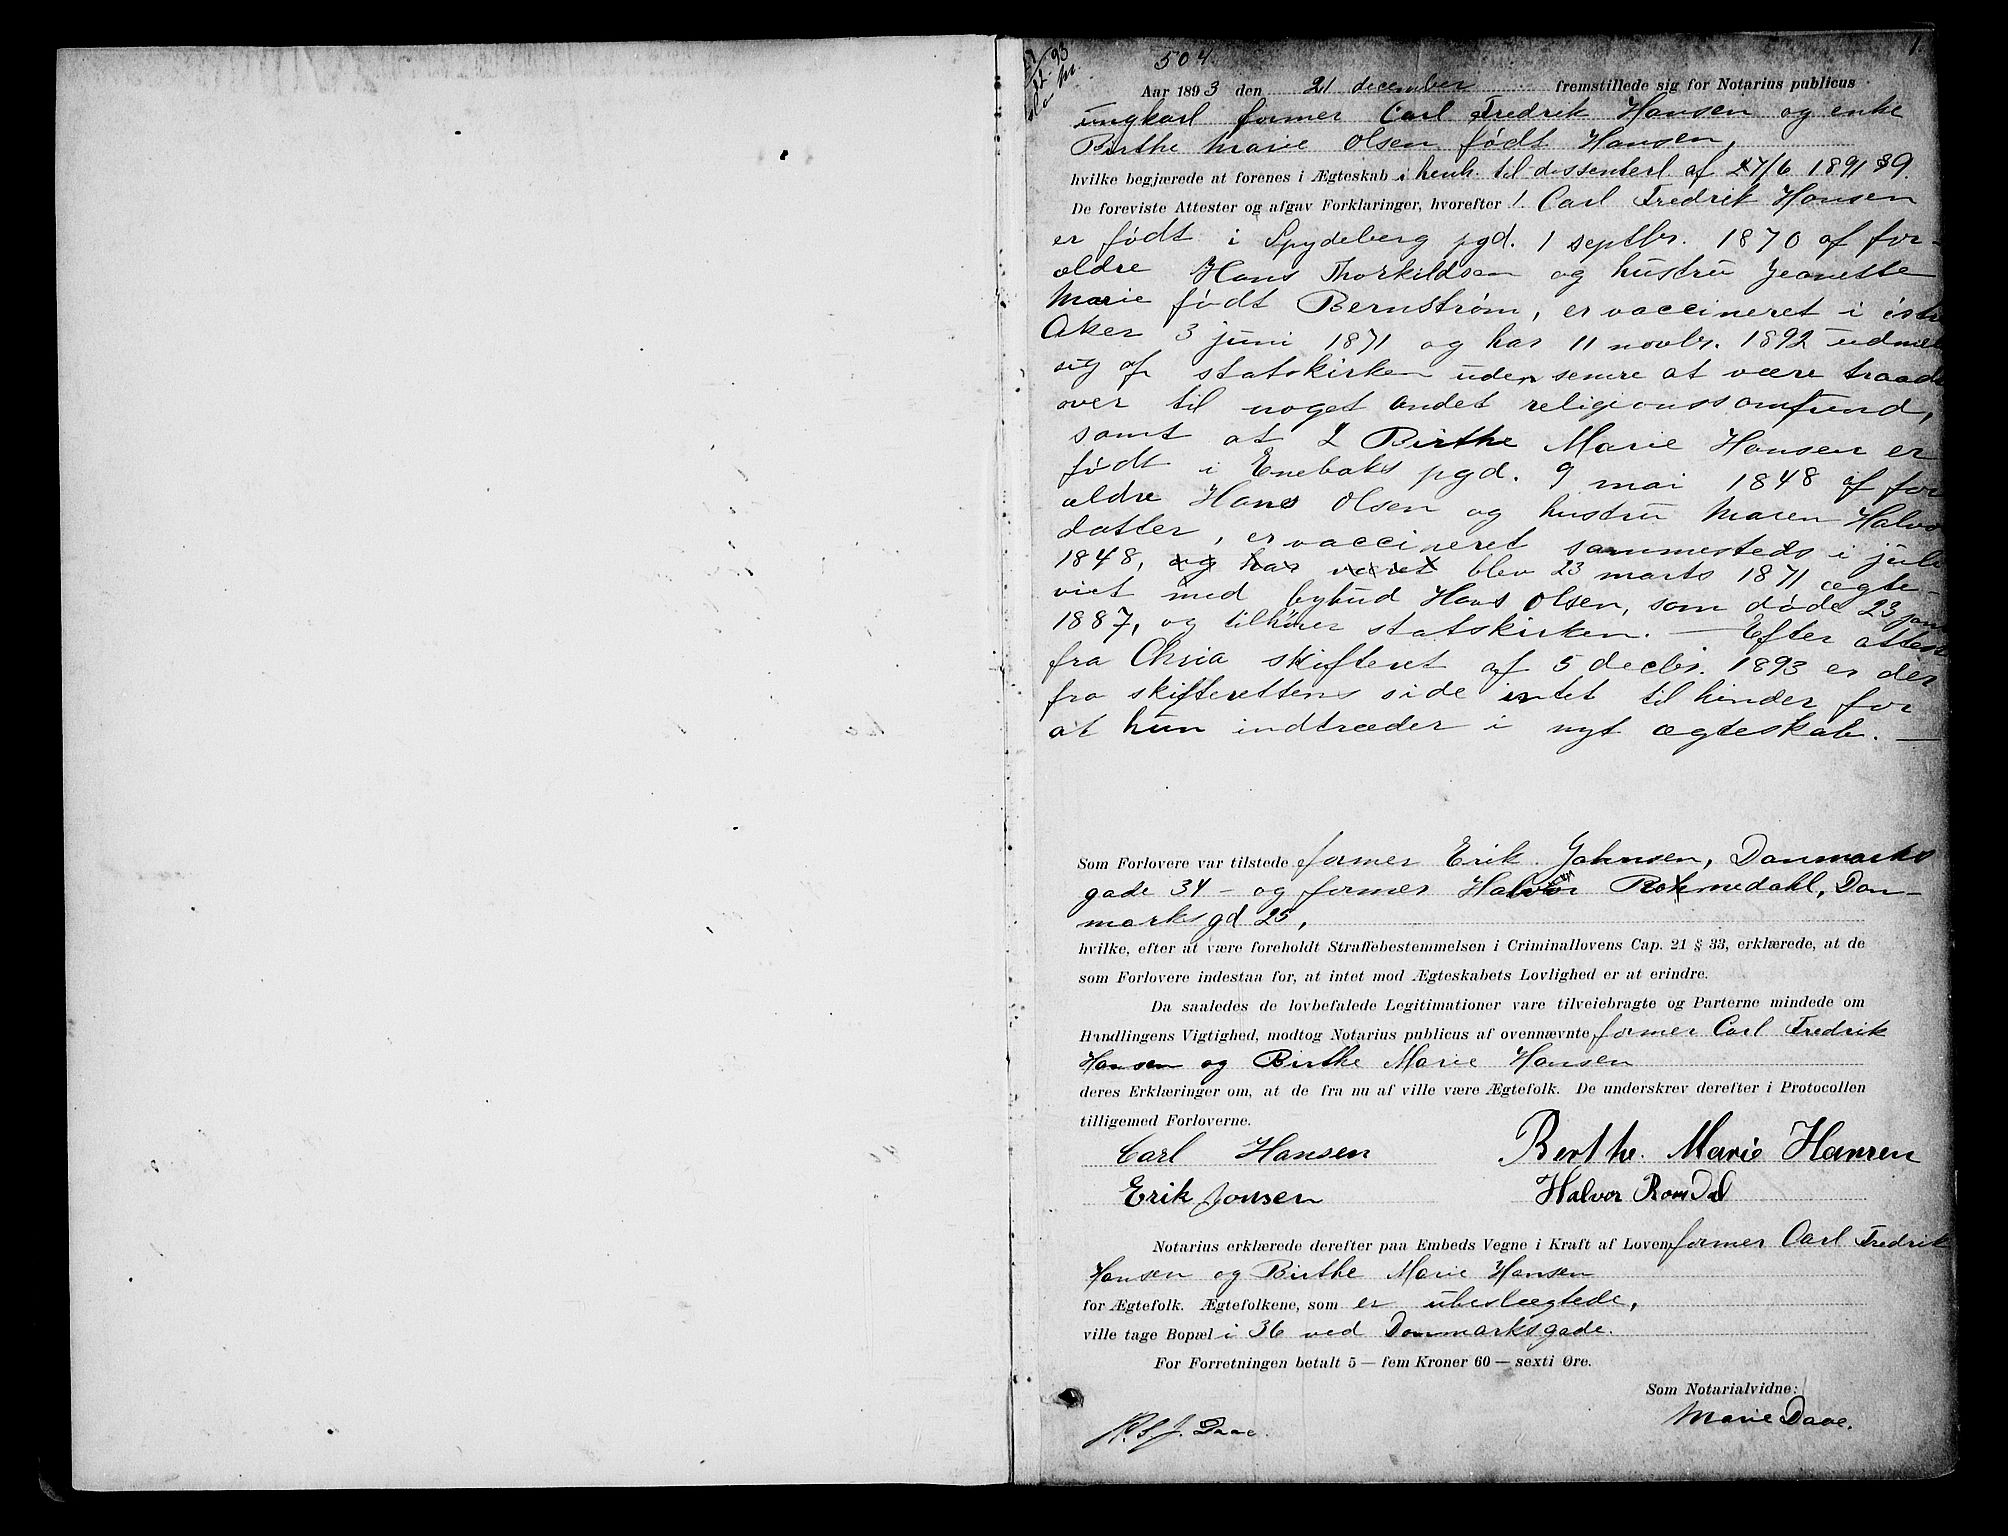 1.
504.
Aar 1893 den 21 december fremstillede sig for Notarius publicus
ungkarl former Carl Fredrik Hansen og enke
Birthe Marie Olsen født Hansen,
hvilke begjærede at forenes i Ægteskab i henh. til dissenterl. af 27/6 1891 § 9.
De foreviste Attester og afgav Forklaringer, hvorefter 1. Carl Fredrik Hansen
er født i Spydeberg pgd. 1 septbr. 1870 af for-
ældre Hans Thorkildsen og hustru Jeanette
Marie født Bernstrøm, er vaccineret i østre
Aker 3 juni 1871 og har 11 novbr. 1892 udmel
sig af statskirken uden senere at være traadt
over til noget andet religionssamfund,
samt at 2 Birthe Marie Hansen er
født i Enebaks pgd. 9 mai 1848 af for
ældre Hans Olsen og hustru Maren Halvo
datter, er vaccineret sammesteds i juli
1848, og har været blev 23 marts 1871 ægte-
viet med bybud Hans Olsen, som døde 23 jan
1887, og tilhører statskirken. — Efter attest
fra Chria skifteret af 5 decbr. 1893 er der
fra skifterettens side intet til hinder for
at hun indtræder i nyt ægteskab. —
Som Forlovere var tilstede former Erik Johnsen, Danmarks
gade 34 - og former Halvor Rommedahl, Dan-
marksgd 25,
hvilke, efter at være foreholdt Straffebestemmelsen i Criminallovens Cap. 21 § 33, erklærede, at de
som Forlovere indestaa for, at intet mod Ægteskabets Lovlighed er at erindre.
Da saaledes de lovbefalede Legitimationer vare tilveiebragte og Parterne mindede om
Handlingens Vigtighed, modtog Notarius publicus af ovennævnte former Carl Fredrik
Hansen og Birthe Marie Hansen
deres Erklæringer om, at de fra nu af ville være Ægtefolk. De underskrev derefter i Protocollen
tilligemed Forloverne.
Carl Hansen Berthe. Marie Hansen
Erik Jonsen Halvor Romdal
Notarius erklærede derefter paa Embeds Vegne i Kraft af Loven former Carl Fredrik
Hansen og Birthe Marie Hansen
for Ægtefolk. Ægtefolkene, som er ubeslægtede,
ville tage Bopæl i 36 ved Danmarksgade.
For Forretningen betalt 5 — fem Kroner 60 — sexti Øre.
Som Notarialvidne:
Daae. Marie Daae.